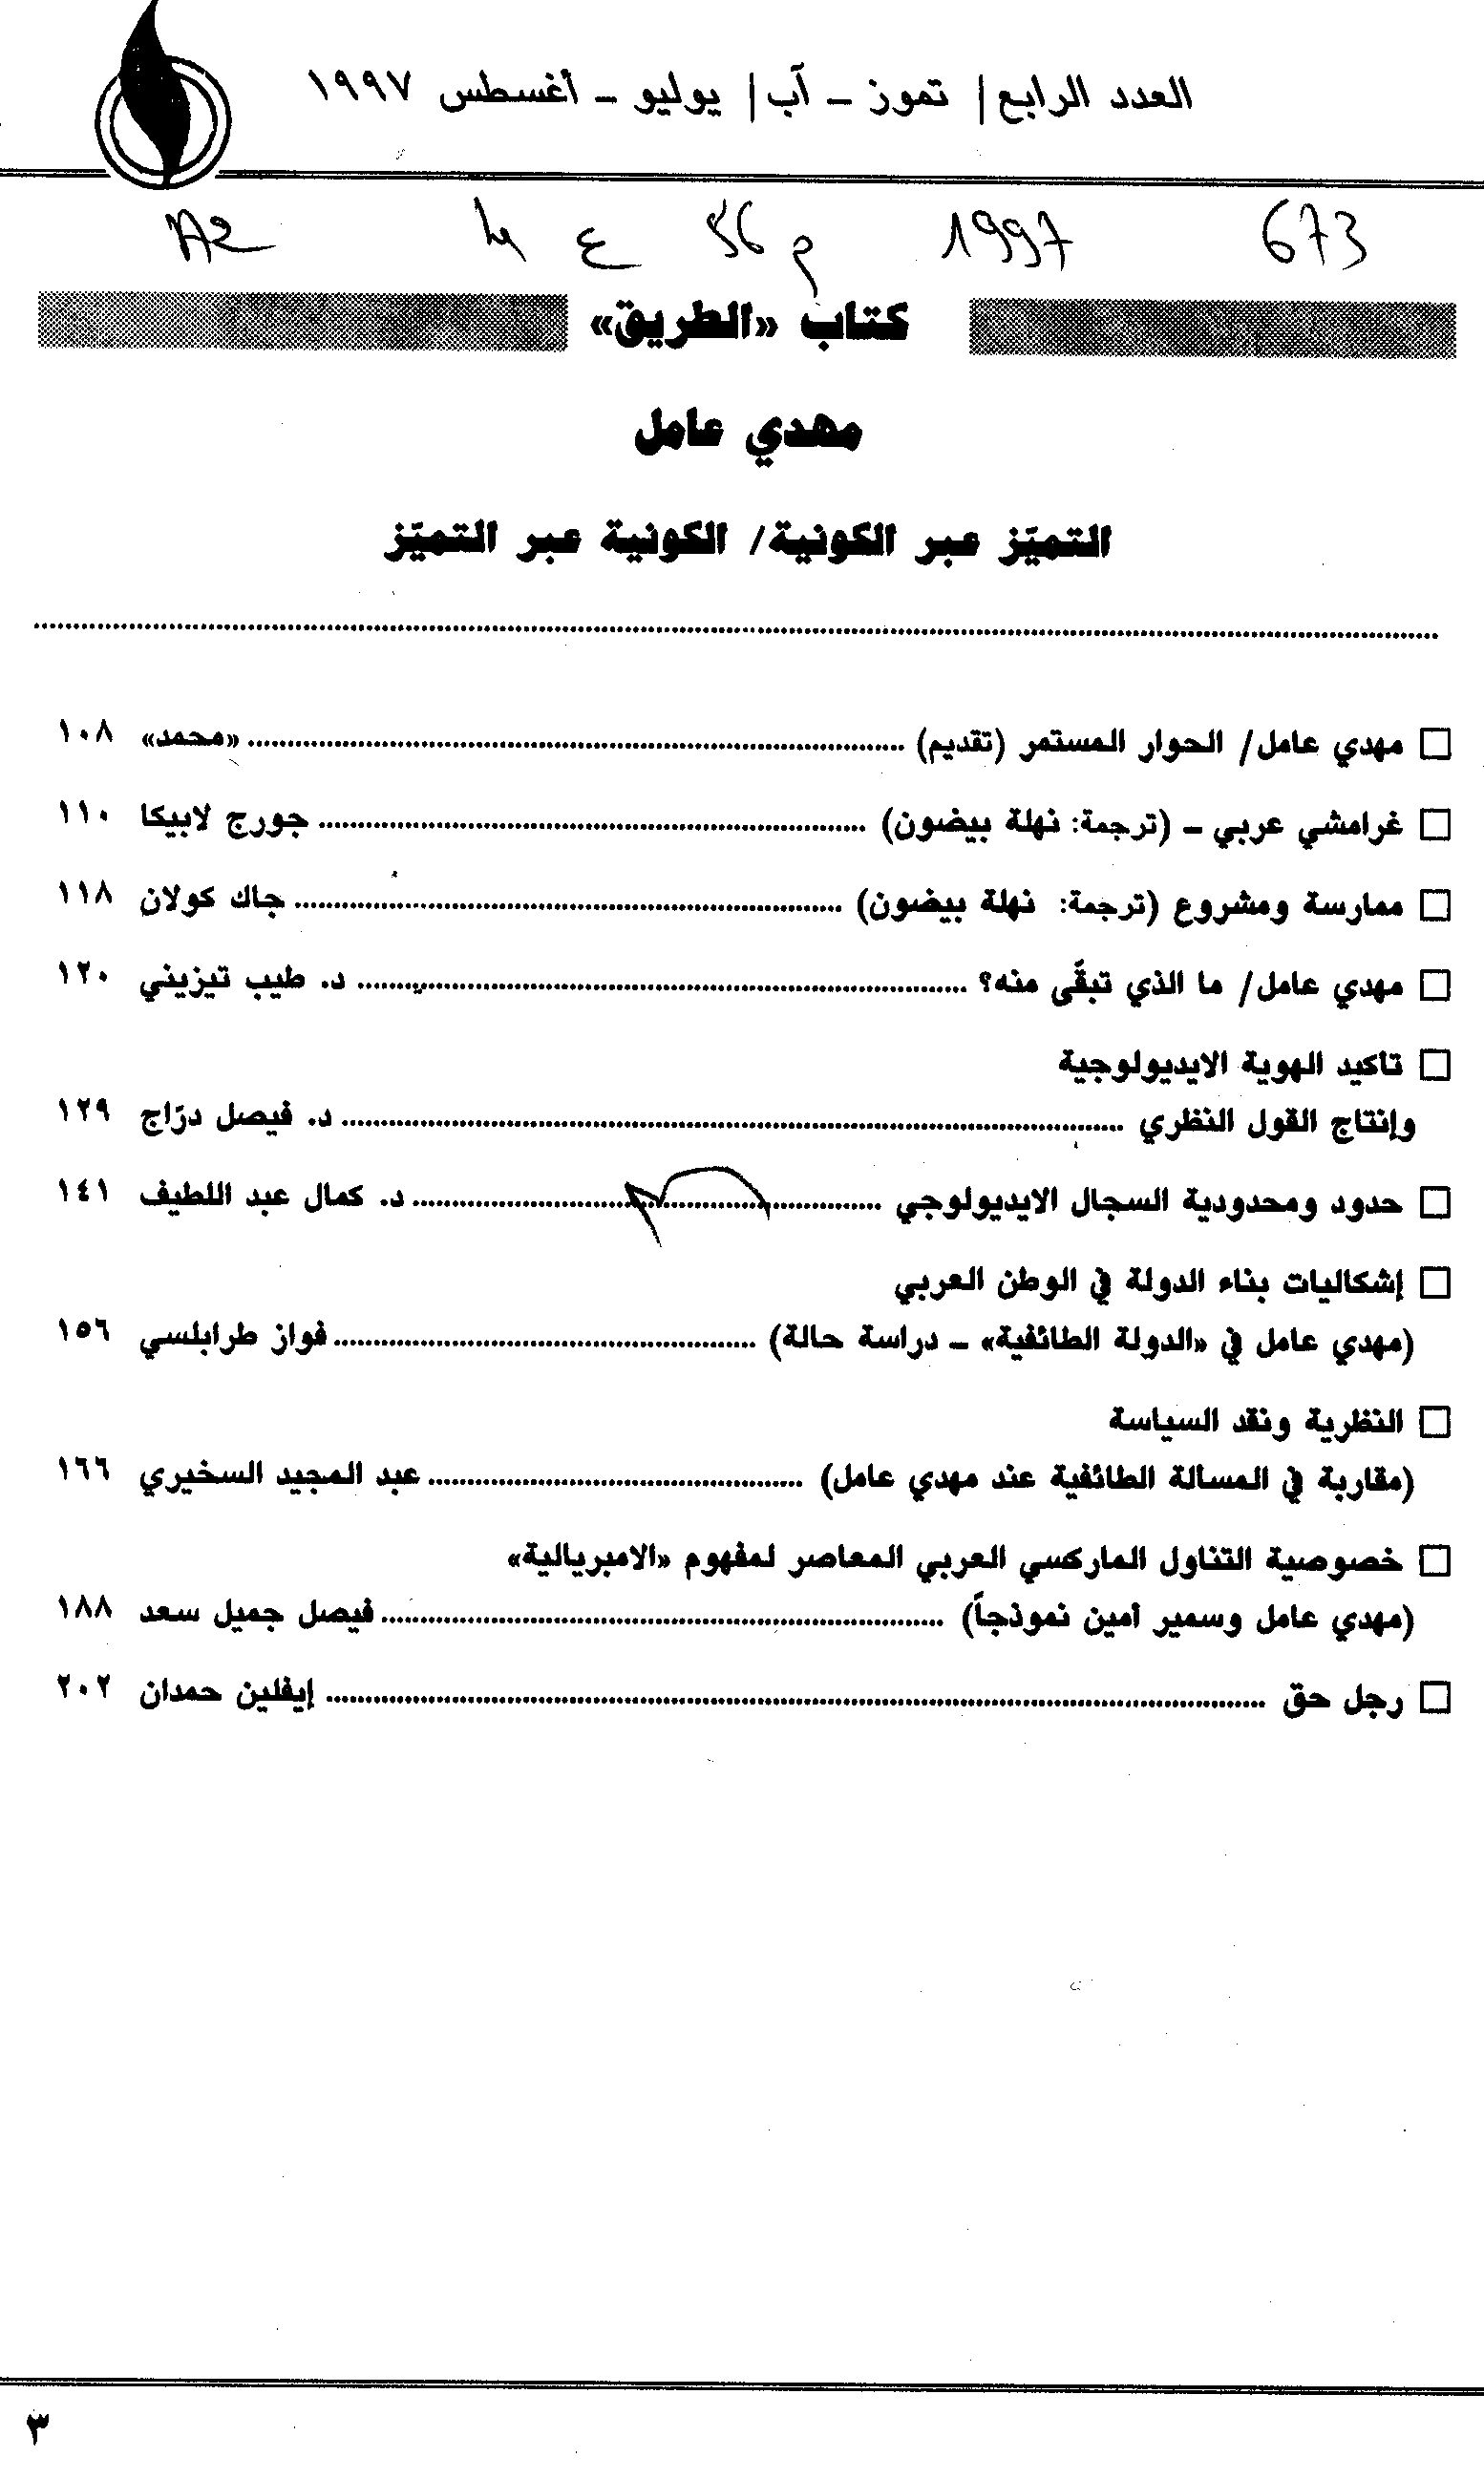 العدد الرابع/ تموز - آب/ يوليو - أغسطس ١٩٩٧
673 1997 م ع A2
كتاب «الطريق»
مهدي عامل
التميّز عبر الكونية/ الكونية عبر التميّز
□ مهدي عامل/ الحوار المستمر (تقديم) .......... «محمد» ١٠٨
□ غرامشي عربي - (ترجمة: نهلة بيضون) .......... جورج لابيكا ١١٠
□ ممارسة ومشروع (ترجمة: نهلة بيضون) .......... جاك كولان ١١٨
□ مهدي عامل/ ما الذي تبقّى منه؟ .......... د. طيب تيزيني ١٢٠
□ تاكيد الهوية الايديولوجية
وإنتاج القول النظري .......... د. فيصل درّاج ١٢٩
□ حدود ومحدودية السجال الايديولوجي .......... د. كمال عبد اللطيف ١٤١
□ إشكاليات بناء الدولة في الوطن العربي
(مهدي عامل في «الدولة الطائفية» - دراسة حالة) .......... فواز طرابلسي ١٥٦
□ النظرية ونقد السياسة
(مقاربة في المسالة الطائفية عند مهدي عامل) .......... عبد المجيد السخيري ١٦٦
□ خصوصية التناول الماركسي العربي المعاصر لمفهوم «الامبريالية»
(مهدي عامل وسمير أمين نموذجاً) .......... فيصل جميل سعد ١٨٨
□ رجل حق .......... إيفلين حمدان ٢٠٢
٣